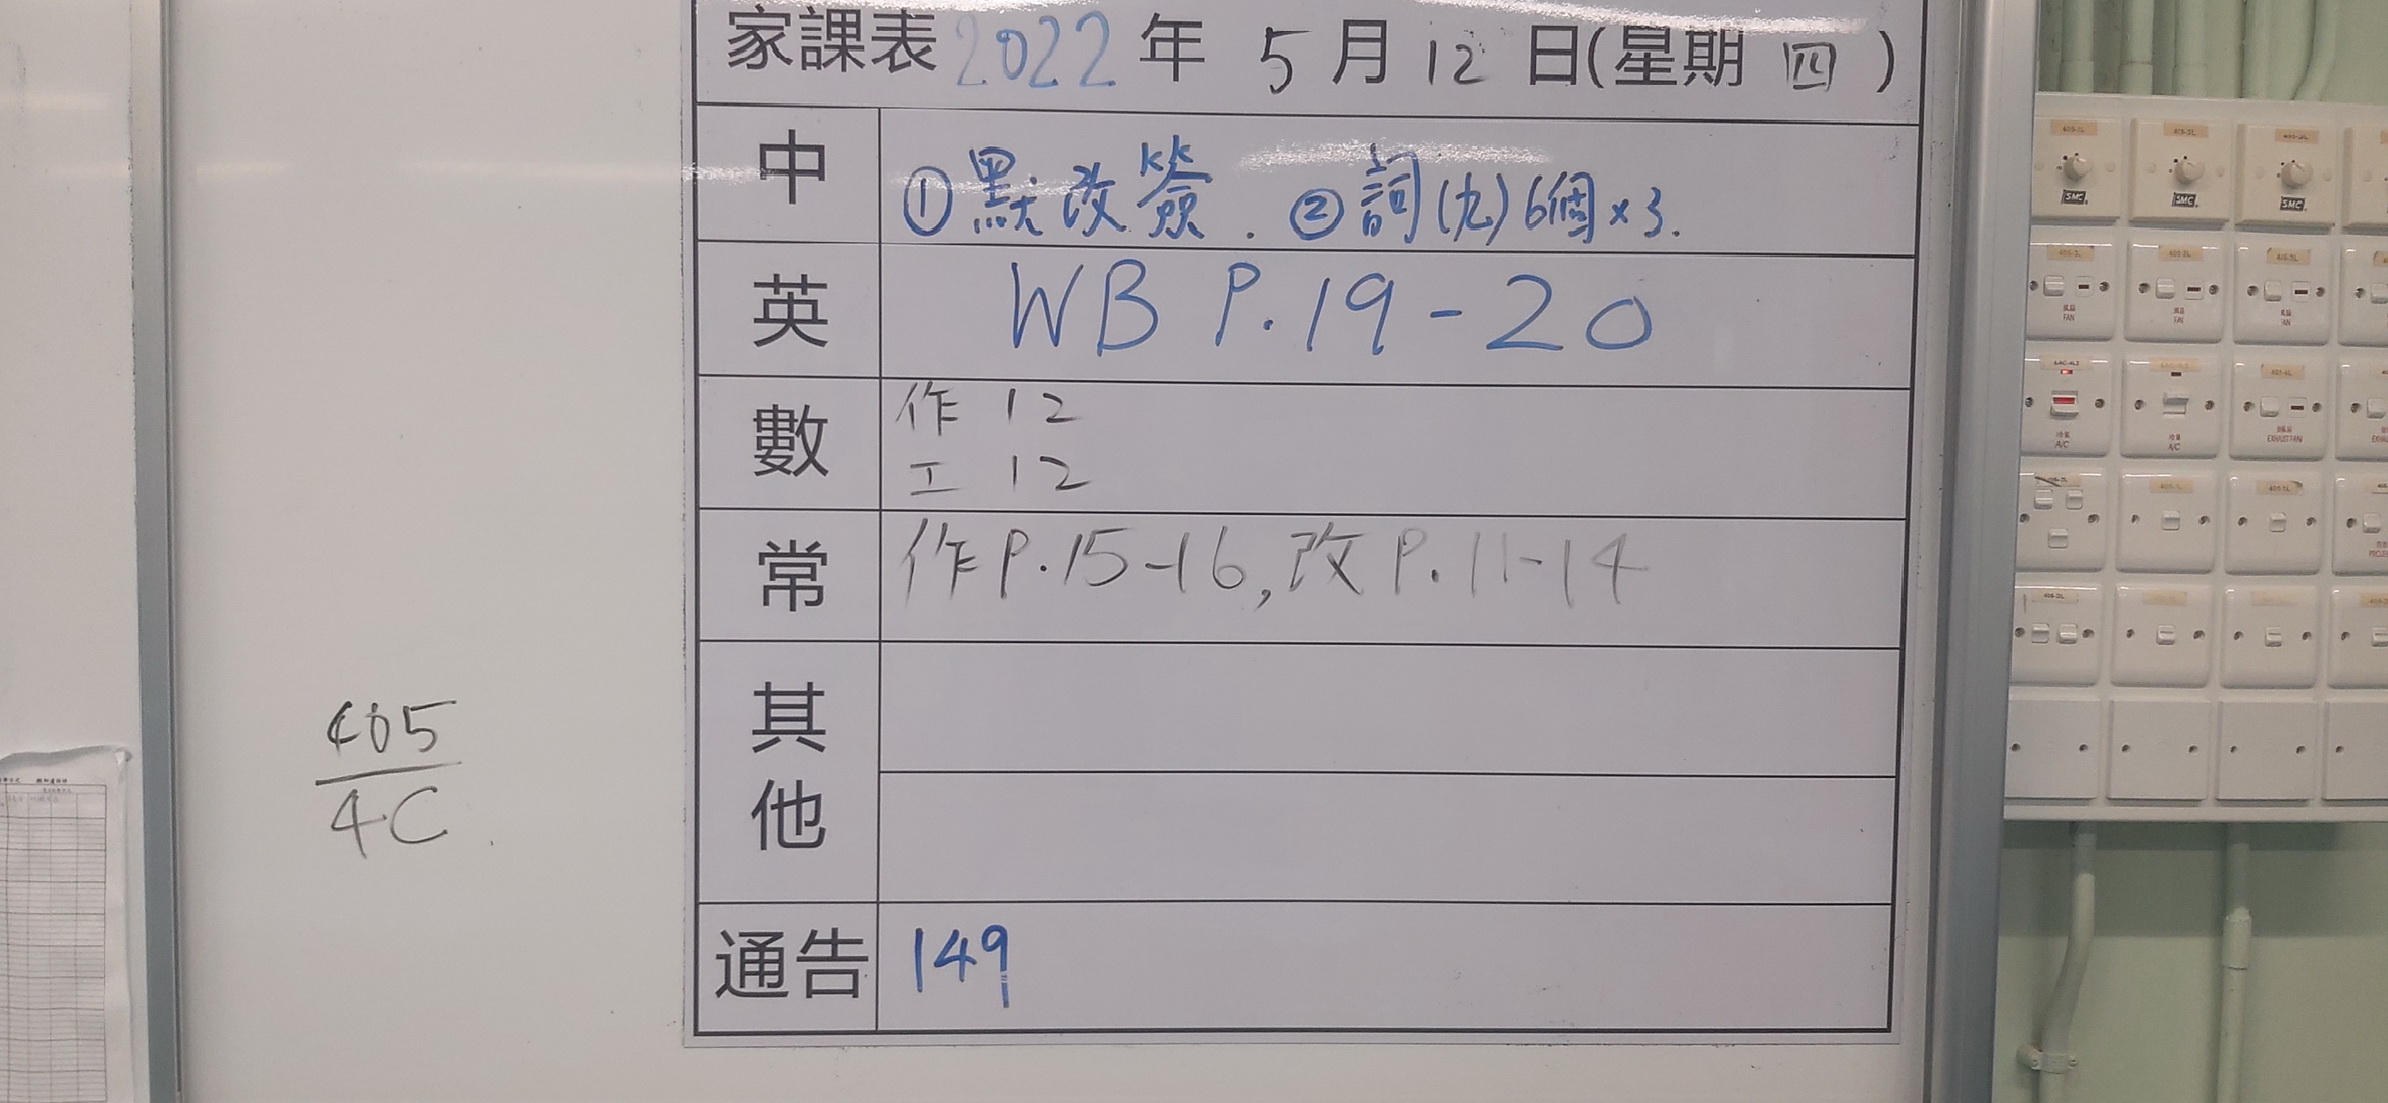 家課表 2022 年 5 月 12 日(星期 四 )
中
①默改簽. ②詞(九)6個×3.
英
WB P.19-20
數
作 12
工 12
常
作P.15-16,改P.11-14
其他
通告
149
405
4C
SMC
SMC
SMC
風扇
FAN
風扇
FAN
風扇
FAN
冷氣
A/C
冷氣
A/C
EXHAUST FAN